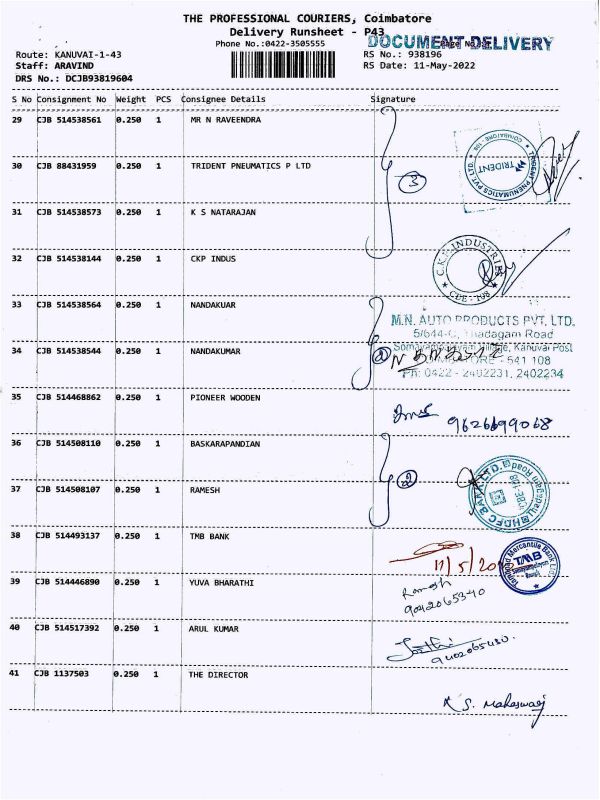 THE PROFESSIONAL COURIERS, Coimbatore
Delivery Runsheet - P43
Phone No.:0422-3505555
DOCUMENT DELIVERY
Route: KANUVAI-1-43
RS No.: 938196
Staff: ARAVIND
RS Date: 11-May-2022
DRS No.: DCJB93819604
S No Consignment No Weight PCS Consignee Details Signature
29 CJB 514538561 0.250 1 MR N RAVEENDRA
30 CJB 88431959 0.250 1 TRIDENT PNEUMATICS P LTD
3
TRIDENT PNEUMATICS PVT. LTD.
COIMBATORE - 108
TRIDENT
31 CJB 514538573 0.250 1 K S NATARAJAN
32 CJB 514538144 0.250 1 CKP INDUS
C.K.P. INDUSTRIES
CBE - 108
33 CJB 514538564 0.250 1 NANDAKUAR
M.N. AUTO PRODUCTS PVT. LTD.
5/644-C, Thadagam Road
34 CJB 514538544 0.250 1 NANDAKUMAR
2
Somayampalayam Village, Kanuvai Post
COIMBATORE - 641 108
Ph: 0422 - 2402231, 2402234
35 CJB 514468862 0.250 1 PIONEER WOODEN
9626699068
36 CJB 514508110 0.250 1 BASKARAPANDIAN
2
HDFC BANK LTD.
Thadagam Road
CBE-108
37 CJB 514508107 0.250 1 RAMESH
38 CJB 514493137 0.250 1 TMB BANK
11/5/2022
Tamilnad Mercantile Bank Ltd.
TMB
39 CJB 514446890 0.250 1 YUVA BHARATHI
Ramesh
9042065340
40 CJB 514517392 0.250 1 ARUL KUMAR
41 CJB 1137503 0.250 1 THE DIRECTOR
K S. Maheswari